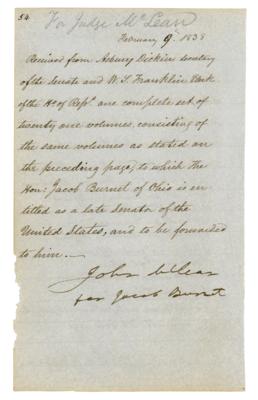 54
For Judge McLean
February 9th 1838
Received from Asbury Dickins Secretary
of the Senate and W. S. Franklin Clerk
of the Ho. of Reps. one complete set of
twenty one volumes, consisting of
the same volumes as stated on
the preceding page, to which the
Hon: Jacob Burnet of Ohio is en
titled as a late Senator of the
United States, and to be forwarded
to him. —
John McLean
for Jacob Burnet